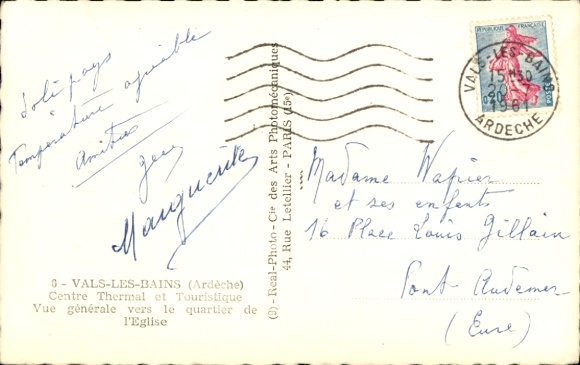 Joli pays
Température agréable
Amitiés
Marguerite
6 - VALS-LES-BAINS (Ardèche)
Centre Thermal et Touristique
Vue générale vers le quartier de
l'Eglise
(6) - Real-Photo - Cie des Arts Photomécaniques
44, Rue Letellier - PARIS (15e)
REPUBLIQUE FRANÇAISE
VALS-LES-BAINS
15H30
1961
ARDECHE
Madame Wapier
et ses enfants
16 Place Louis Gillain
Pont-Audemer
(Eure)